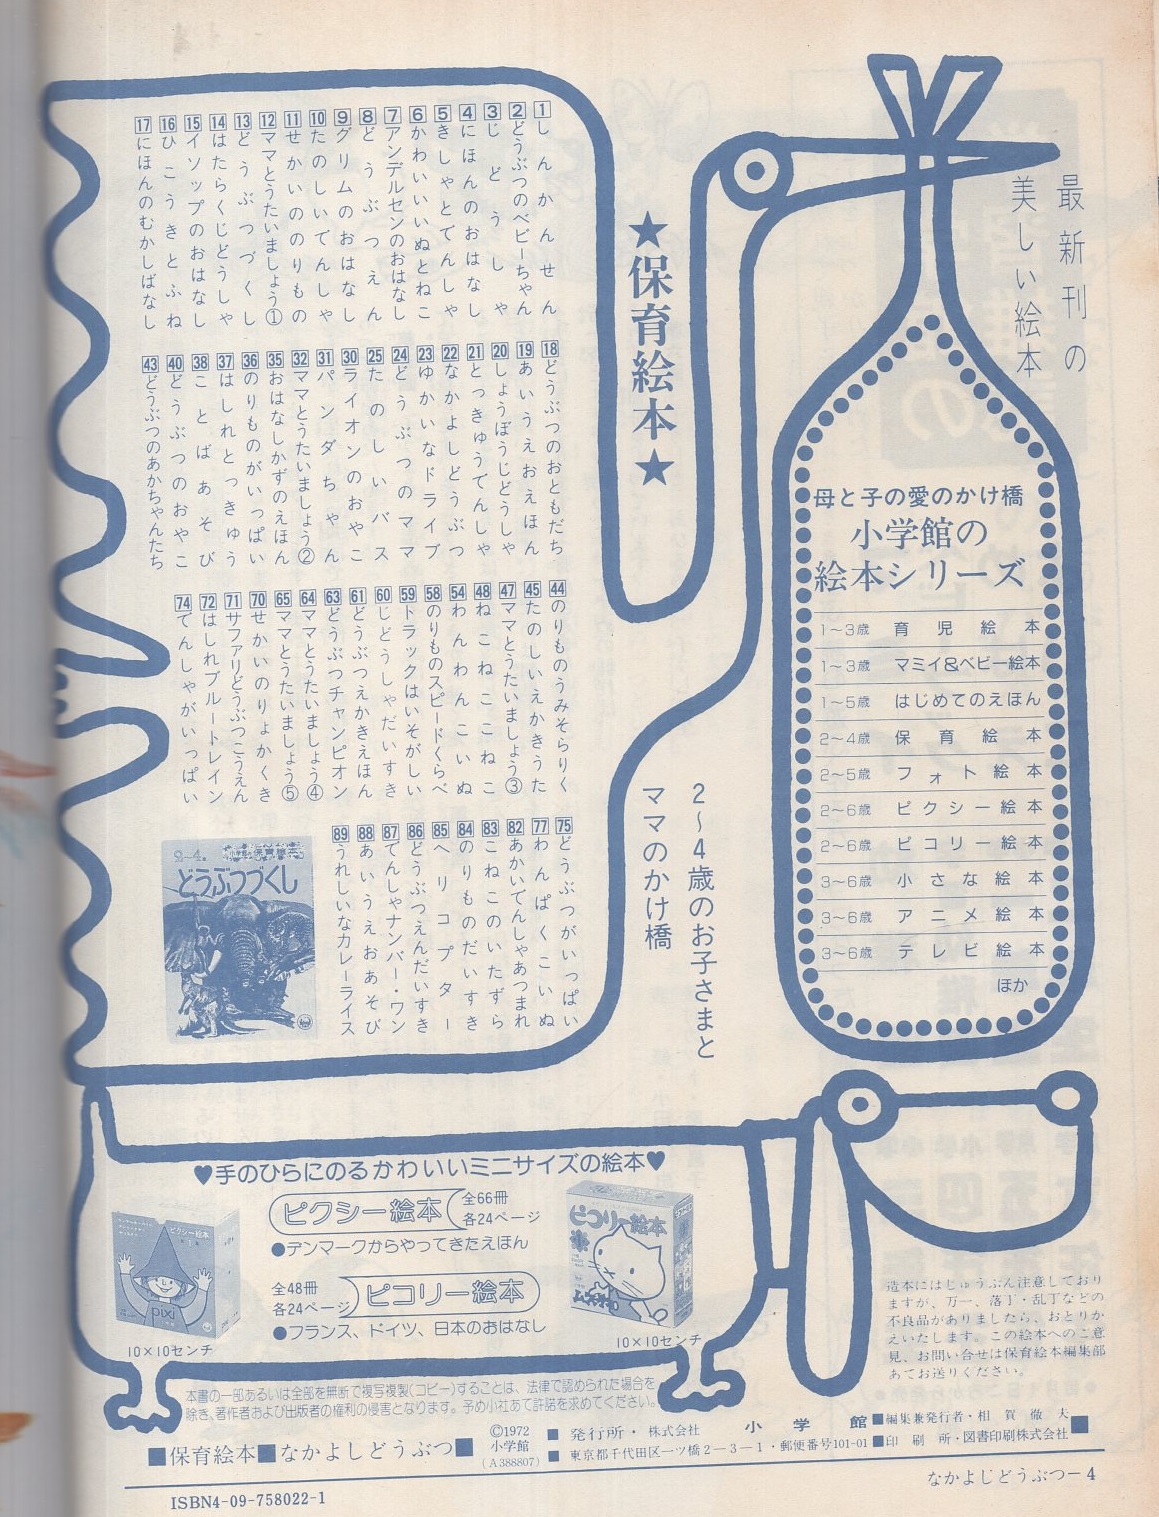 最新刊の
美しい絵本
母と子の愛のかけ橋
小学館の
絵本シリーズ
1～3歳 育児絵本
1～3歳 マミイ&ベビー絵本
1～5歳 はじめてのえほん
2～4歳 保育絵本
2～5歳 フォト絵本
2～6歳 ピクシー絵本
2～6歳 ピコリー絵本
3～6歳 小さな絵本
3～6歳 アニメ絵本
3～6歳 テレビ絵本
ほか
★保育絵本★
2～4歳のお子さまと
ママのかけ橋
1 しんかんせん
2 どうぶつのベビーちゃん
3 じどうしゃ
4 にほんのおはなし
5 きしゃとでんしゃ
6 かわいいいぬとねこ
7 アンデルセンのおはなし
8 どうぶつえん
9 グリムのおはなし
10 たのしいでんしゃ
11 せかいののりもの
12 ママとうたいましょう①
13 どうぶつづくし
14 はたらくじどうしゃ
15 イソップのおはなし
16 ひこうきとふね
17 にほんのむかしばなし
18 どうぶつのおともだち
19 あいうえおえほん
20 しょうぼうじどうしゃ
21 とっきゅうでんしゃ
22 なかよしどうぶつ
23 ゆかいなドライブ
24 どうぶつのママ
25 たのしいバス
30 ライオンのおやこ
31 パンダちゃん
32 ママとうたいましょう②
35 おはなしかずのえほん
36 のりものがいっぱい
37 はしれとっきゅう
38 ことばあそび
40 どうぶつのおやこ
43 どうぶつのあかちゃんたち
44 のりものうみそらりく
45 たのしいえかきうた
47 ママとうたいましょう③
48 ねこねここねこ
54 わんわんこいぬ
58 のりものスピードくらべ
59 トラックはいそがしい
60 じどうしゃだいすき
61 どうぶつえかきえほん
63 どうぶつチャンピオン
64 ママとうたいましょう④
65 ママとうたいましょう⑤
70 せかいのりょかくき
71 サファリどうぶつこうえん
72 はしれブルートレイン
74 でんしゃがいっぱい
75 どうぶつがいっぱい
77 わんぱくこいぬ
82 あかいでんしゃあつまれ
83 こねこのいたずら
84 のりものだいすき
85 ヘリコプター
86 どうぶつえんだいすき
87 でんしゃナンバー・ワン
88 あいうえおあそび
89 うれしいなカレーライス
2～4歳
小学館の保育絵本
どうぶつづくし
♥手のひらにのるかわいいミニサイズの絵本♥
ピクシー絵本
全66冊
各24ページ
●デンマークからやってきたえほん
全48冊
各24ページ
ピコリー絵本
●フランス、ドイツ、日本のおはなし
ピクシー絵本
pixi
10×10センチ
ピコリー絵本
10×10センチ
造本にはじゅうぶん注意しており
ますが、万一、落丁・乱丁などの
不良品がありましたら、おとりか
えいたします。この絵本へのご意
見、お問い合せは保育絵本編集部
あてお送りください。
本書の一部あるいは全部を無断で複写複製(コピー)することは、法律で認められた場合を
除き、著作者および出版者の権利の侵害となります。予め小社あて許諾を求めてください。
■保育絵本■なかよしどうぶつ■
©1972
小学館
(A388807)
■発行所・株式会社 小学館■編集兼発行者・相賀徹夫
■東京都千代田区一ツ橋2-3-1・郵便番号101-01■印刷所・図書印刷株式会社■
なかよしどうぶつー4
ISBN4-09-758022-1